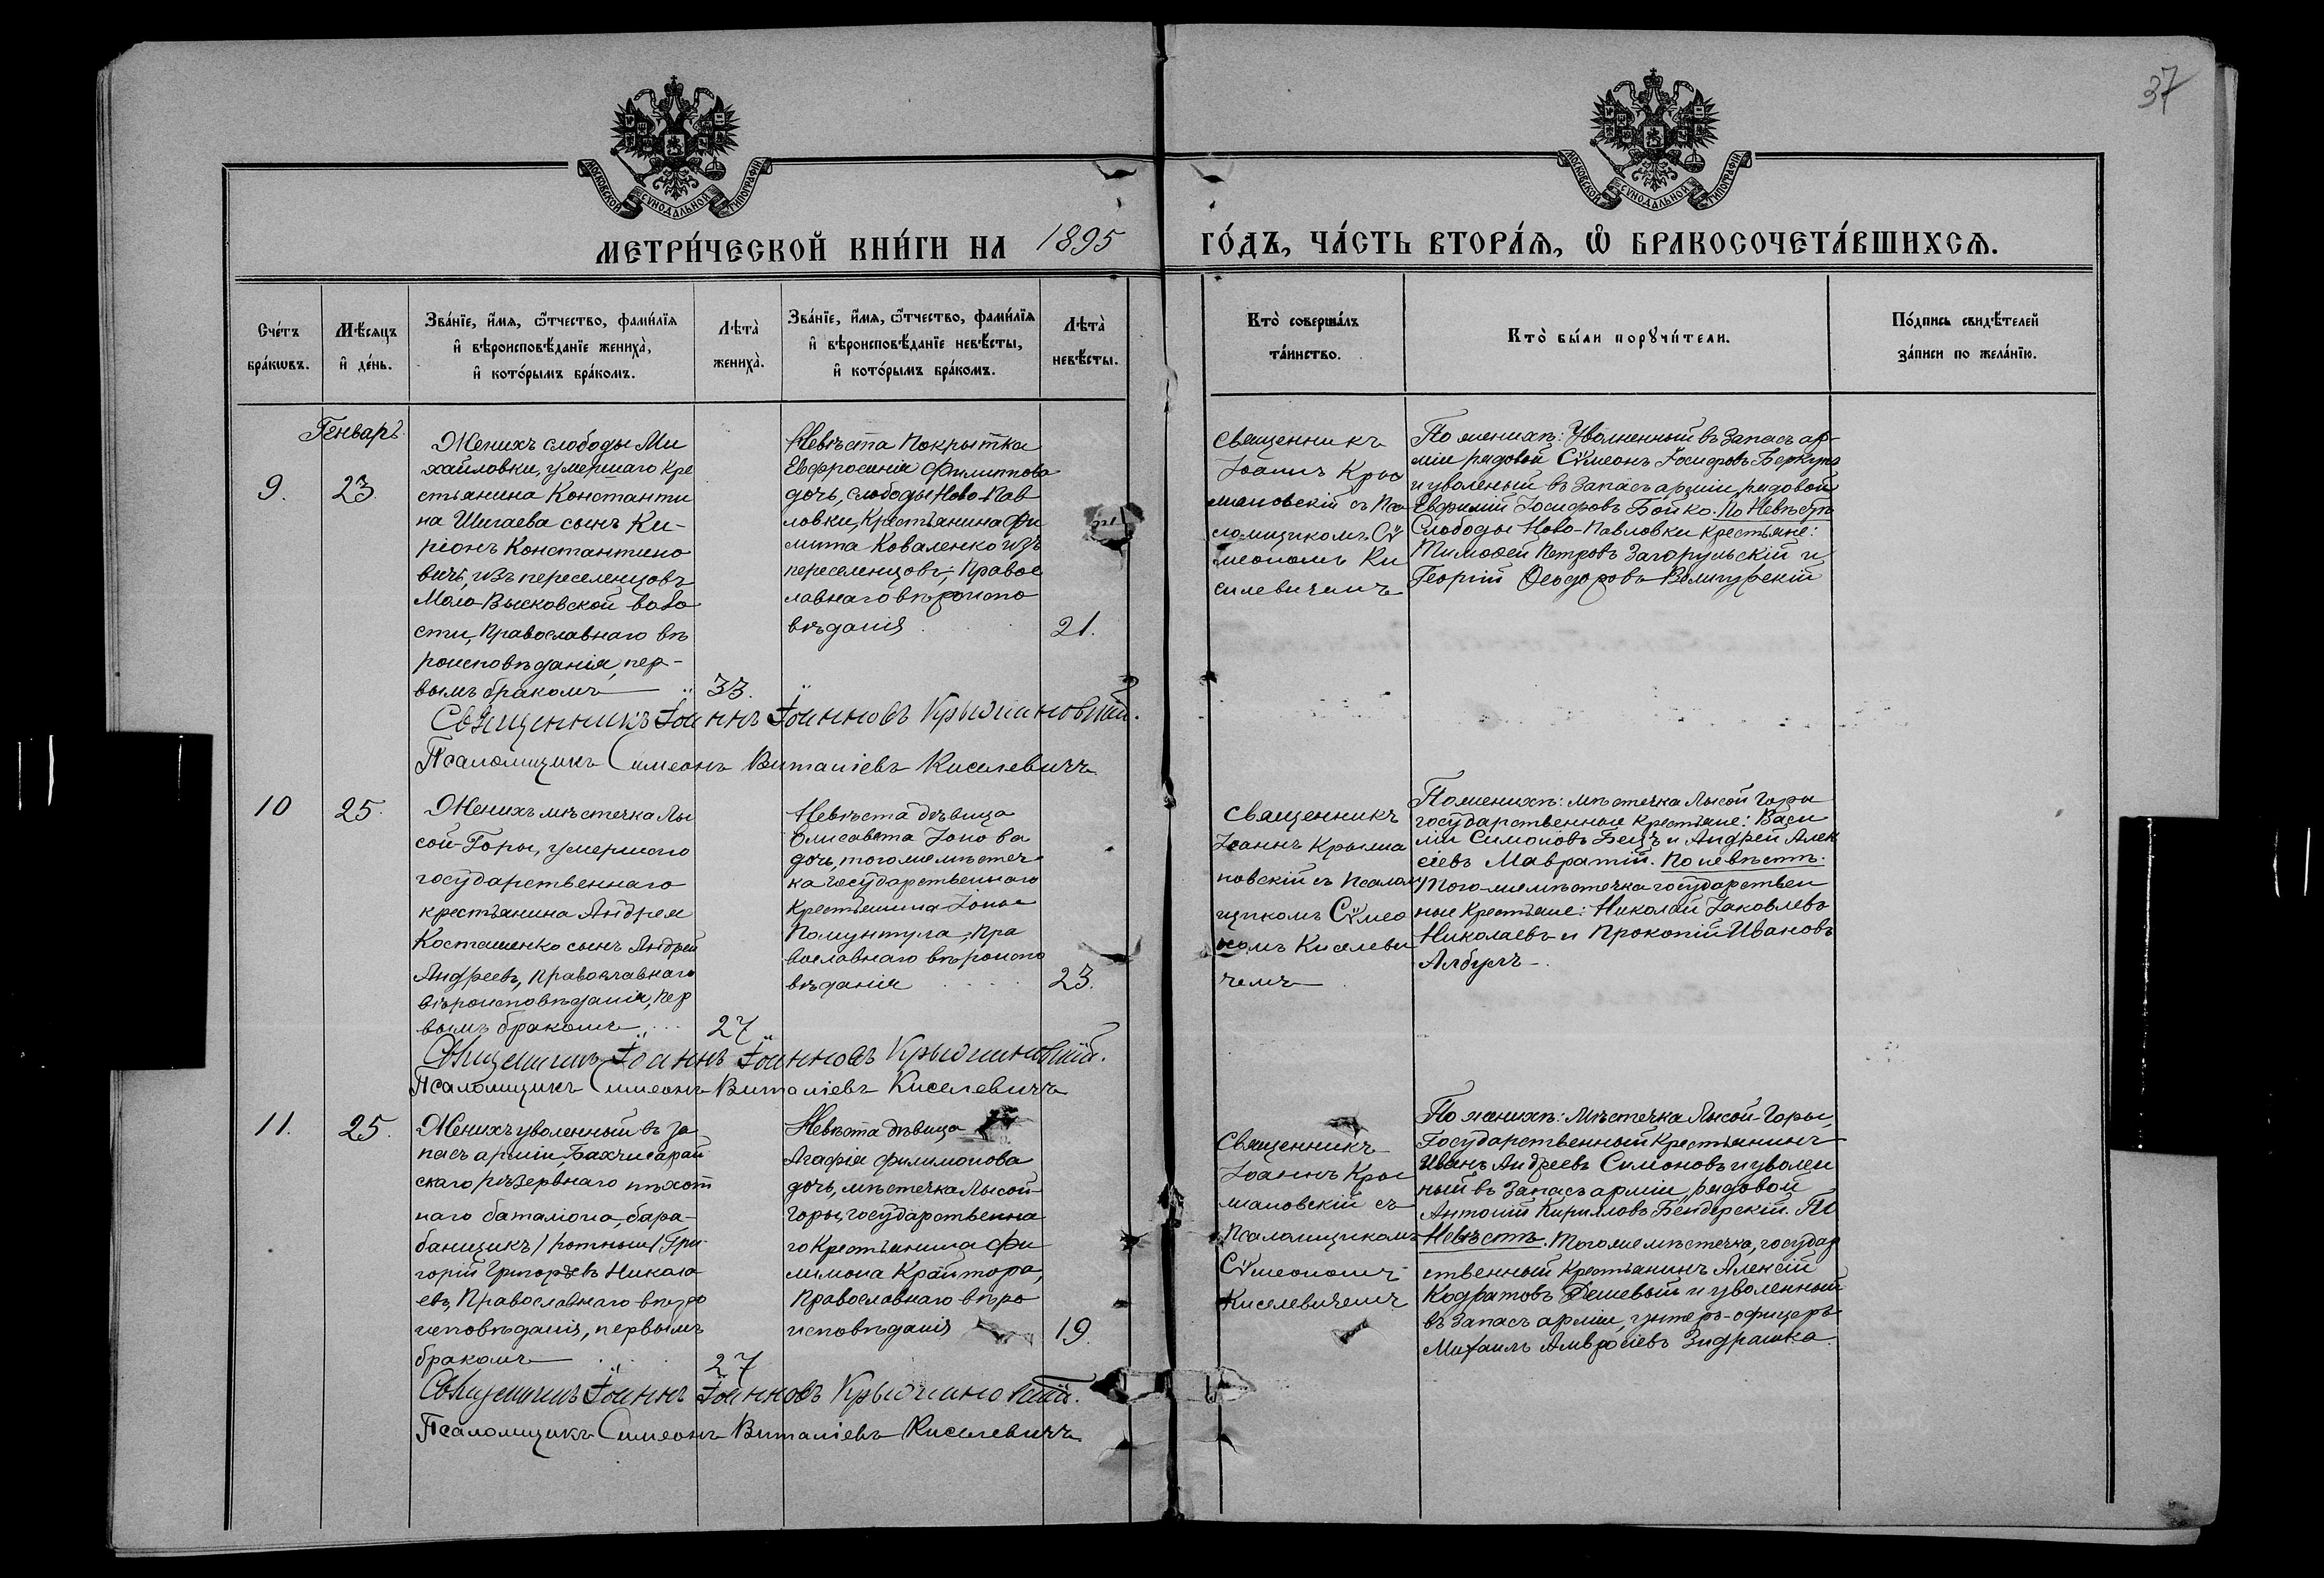 37
МОСКОВСКОЙ СѴНОДАЛЬНОЙ ТИПОГРАФІИ
МОСКОВСКОЙ СѴНОДАЛЬНОЙ ТИПОГРАФІИ
МЕТРИ́ЧЕСКОЙ КНИ́ГИ НА 1895 ГО́ДЪ, ЧА́СТЬ ВТОРА́Ѧ, Ѡ҆ БРАКОСОЧЕТА́ВШИХСѦ.
Сче́тъ
бра́кѡвъ.
Мѣ́сяцъ
и҆ де́нь.
Зва́нїе, и҆́мѧ, ѻ҆́тчество, фами́лїѧ
и҆ вѣроисповѣ́данїе жениха̀,
и҆ кото́рымъ бра́комъ.
Лѣта̀
жениха̀.
Зва́нїе, и҆́мѧ, ѻ҆́тчество, фами́лїѧ
и҆ вѣроисповѣ́данїе невѣ́сты,
и҆ кото́рымъ бра́комъ.
Лѣта̀
невѣ́сты.
Кто̀ соверша́лъ
та́инство.
Кто̀ бы́ли порꙋчи́тели.
По́дпись свидѣ́телей
за́писи по жела́нїю.
Генварь
9.
23.
Женихъ слободы Ми
хайловки, умершаго кре
стьянина Константи
на Шигаева сынъ Ки-
ріонъ Константино
вичъ, изъ переселенцовъ
Мало Высковской воло
сти, Православнаго вѣ
роисповѣданія, пер-
вымъ бракомъ
33.
Невѣста Покрытка
Евфросинія Филиппова
дочь, слободы Ново-Пав
ловки, Крестьянина Фи
липпа Коваленко изъ
переселенцовъ, Правос
лавнаго вѣроиспо
вѣданія
21.
Священникъ
Іоаннъ Кры
мановскій съ Пса
ломщикомъ Сѵ
меономъ Ки
силевичемъ
По женихѣ: Уволненный въ запасъ ар-
міи рядовой Сѵмеонъ Іосифовъ Беркута
и уволеный въ запасъ арміи, рядовой
Евфимій Іосифовъ Бойко. По Невѣстѣ
Слободы Ново-Павловки крестьяне:
Тимофей Петровъ Загорульскій и
Георгій Ѳеодоровъ
Священникъ Іоаннъ Іоанновъ Крыжановскій.
Псаломщикъ Симеонъ Виталіевъ Киселевичъ
10
25.
Женихъ мѣстечка Лы
сой-Горы, умершаго
государственнаго
крестьянина Андрея
Косташенко сынъ Андрей
Андреевъ, Православнаго
вѣроисповѣданія, пер
вымъ бракомъ
27
Невѣста дѣвица
Елисавета Іонова
дочь, того же мѣстеч
ка Государственнаго
Крестьянина Іоны
Помунтула, Пра
вославнаго вѣроиспо
вѣданія
23.
Священникъ
Іоаннъ Крыма
новскій съ Псалом
щикомъ Сѵмео
номъ Киселеви
чемъ
По женихѣ: мѣстечка Лысой Горы
государственные крестьяне: Васи
лій Симоновъ Бецъ и Андрей Алек
сіевъ Мавратій. По невѣстѣ:
Того-же мѣстечка государствен
ные Крестьяне: Николай Іаковлевъ
Николаевъ и Прокопій Ивановъ
Албулъ
Священникъ Іоаннъ Іоанновъ Крыжановскій.
Псаломщикъ Симеонъ Виталіевъ Киселевичъ
11.
25.
Женихъ уволенный въ за
пасъ арміи, Бахчисарай
скаго резервнаго пѣхот
наго баталіона, бара-
банщикъ / ротный / Гри-
горій Григорьевъ Никола
евъ, Православнаго вѣро
исповѣданія, первымъ
бракомъ
27
Невѣста дѣвица
Агафія Филимонова
дочь, мѣстечка Лысой-
Горы, государственна
го Крестьянина Фи
лимона Крайтора,
Православнаго вѣро
исповѣданія
19.
Священникъ
Іоаннъ Кры
мановскій съ
Псаломщикомъ
Сѵмеономъ
Киселевичемъ
По женихѣ: мѣстечка Лысой-Горы,
Государственный Крестьянинъ
Иванъ Андреевъ Симоновъ и уволен
ный въ запасъ арміи, рядовой
Антоній Кирилловъ Бендерскій. По
Невѣстѣ. Того же мѣстечка, государ
ственный Крестьянинъ Алексій
Кодратовъ Дешевый и уволенный
въ запасъ арміи, унтеръ-офицеръ
Михаилъ Амвросіевъ Зидрашка.
Священникъ Іоаннъ Іоанновъ Крыжановскій.
Псаломщикъ Симеонъ Виталіевъ Киселевичъ